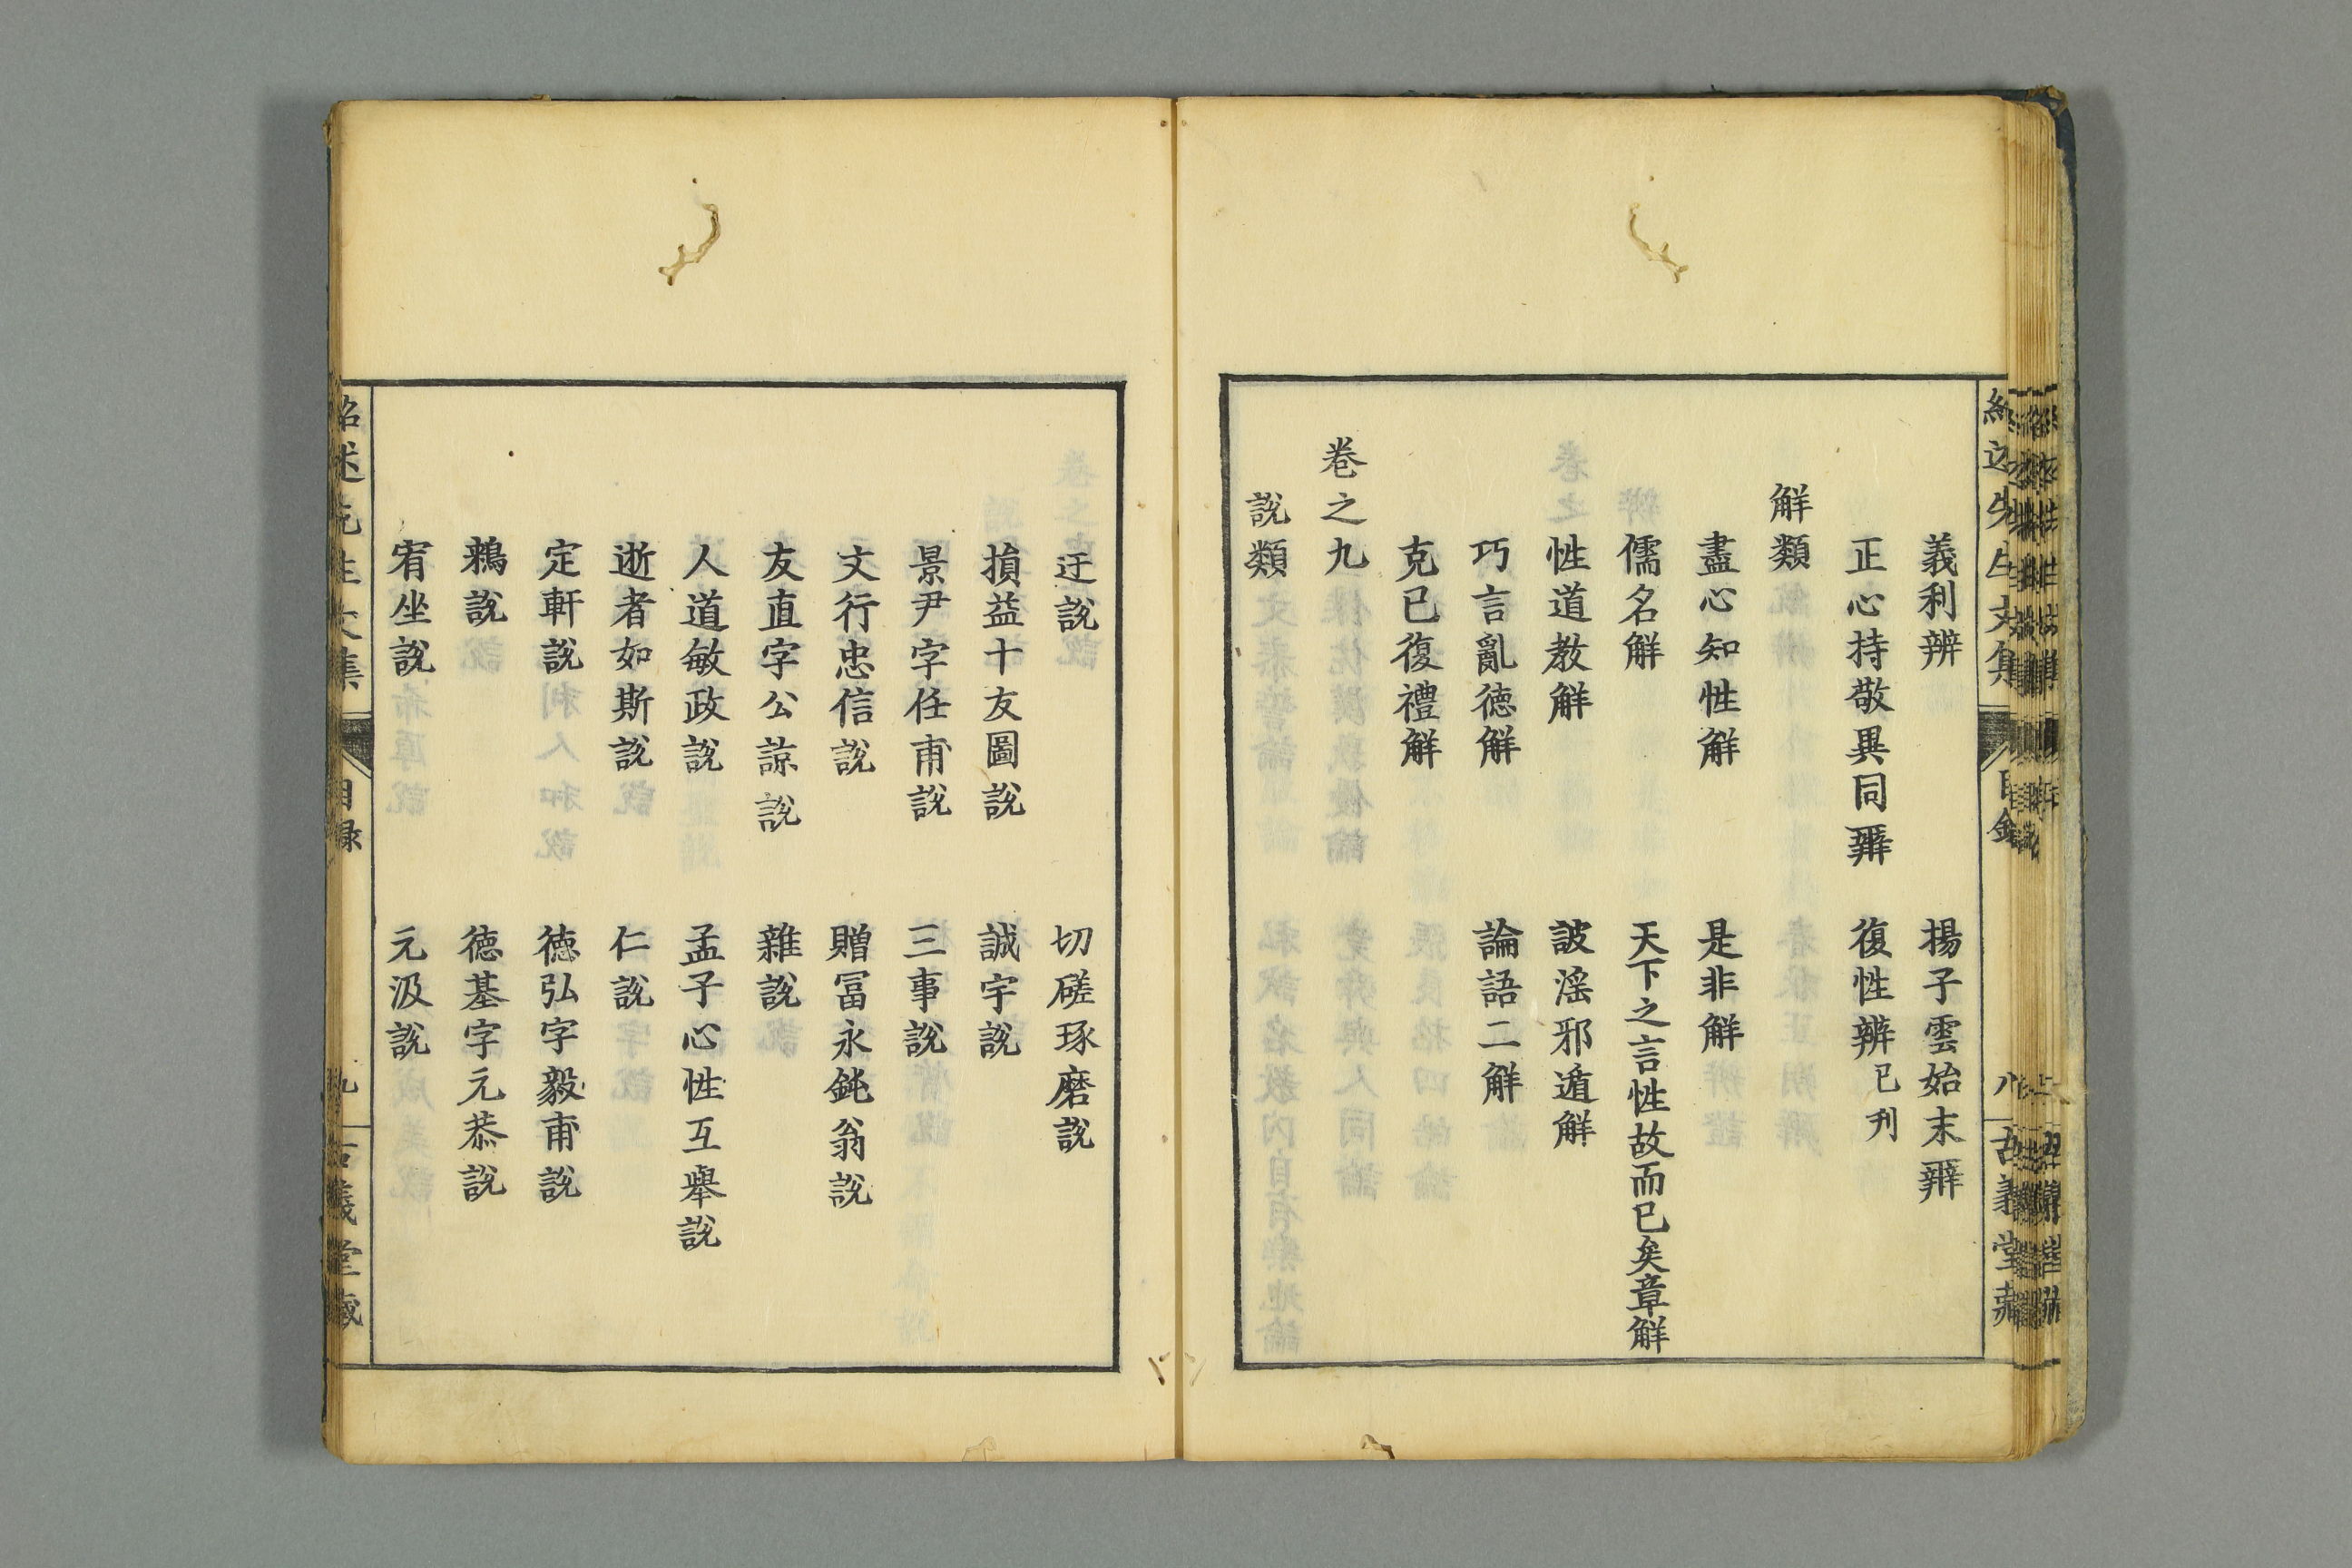 義利辨　揚子雲始末辨
正心持敬異同辨　復性辨已刋
解類
盡心知性解　是非解
儒名解　天下之言性故而已矣章解
性道教解　詖淫邪遁解
巧言亂德解　論語二解
克己復禮解
卷之九
說類
迂說　切磋琢磨說
損益十友圖說　誠字說
景尹字任甫說　三事說
文行忠信說　贈冨永鈍翁說
友直字公諒說　雜說
人道敏政說　孟子心性互舉說
逝者如斯說　仁說
定軒說　德弘字毅甫說
鵜說　德基字元恭說
宥坐說　元汲說
紹述先生文集　目録　九　古義堂藏